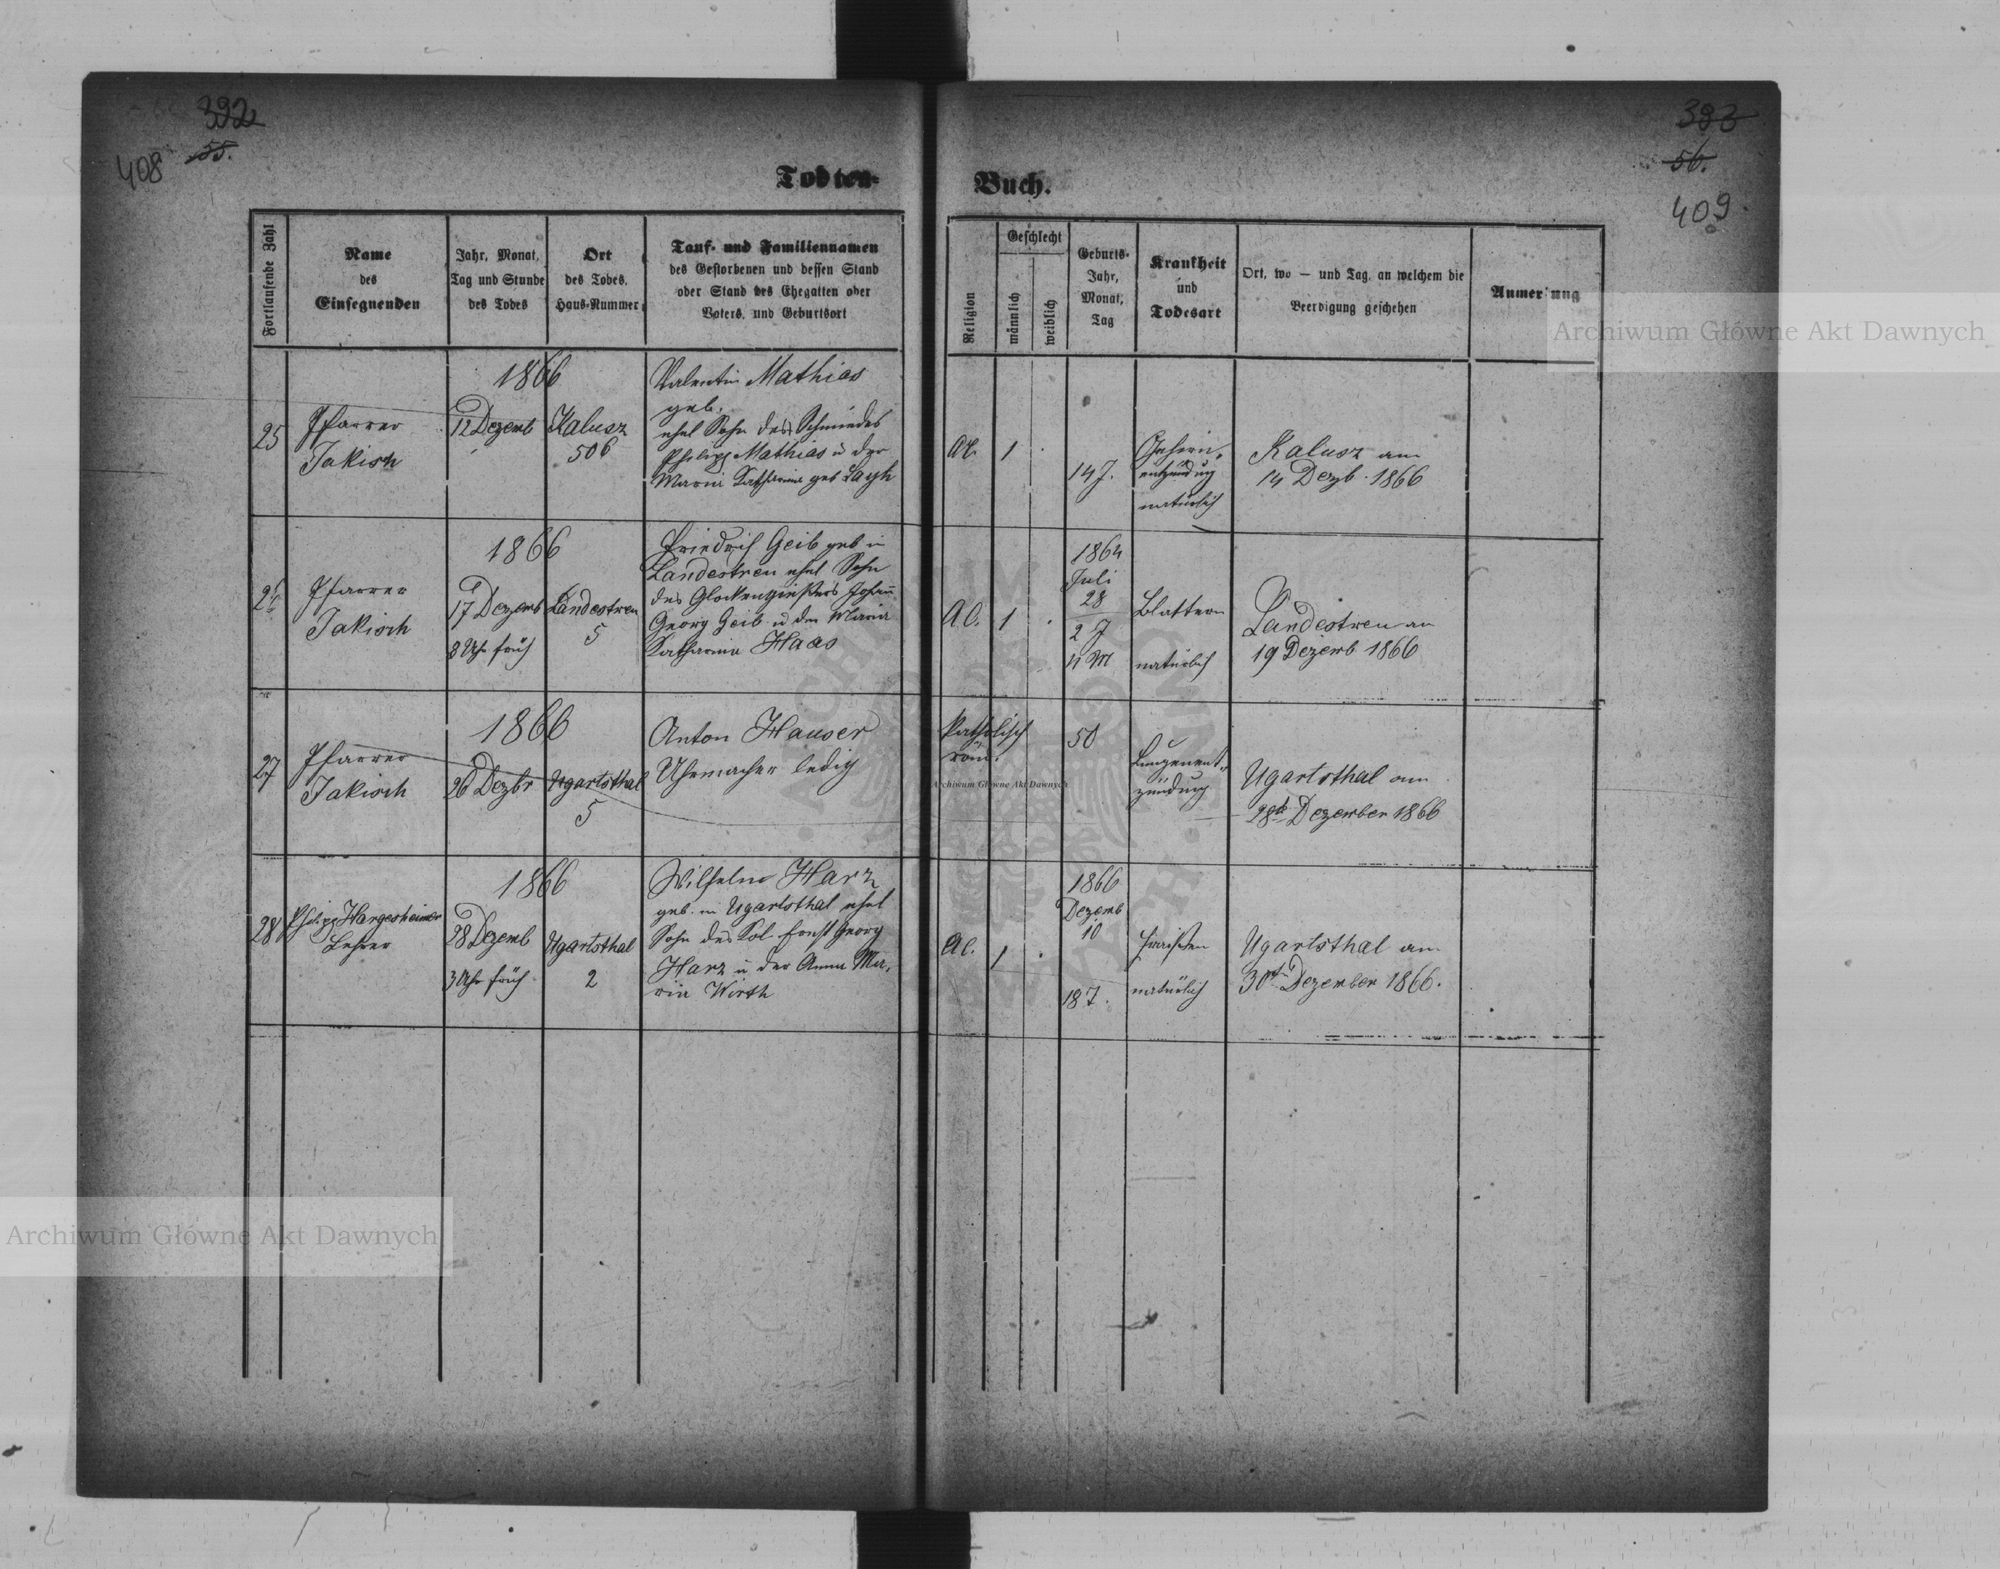 392
55.
408
Todten-
Fortlaufende Zahl
Name
des
Einsegnenden
Jahr, Monat,
Tag und Stunde
des Todes
Ort
des Todes,
Haus-Nummer
Tauf- und Familiennamen
des Gestorbenen und dessen Stand
oder Stand des Ehegatten oder
Vaters, und Geburtsort
25
Pfarrer
Jakisch
1866
12 Dezemb
Kalusz
506
Valentin Mathias
geb.
ehel Sohn des Schmiedes
Philipp Mathias u der
Maria Katharina geb
26
Pfarrer
Jakisch
1866
17 Dezemb
8 Uhr früh
Landestreu
5
Friedrich Geib geb in
Landestreu ehel Sohn
des Glockengießers Johann
Georg Geib u der Maria
Katharina Haas
27
Pfarrer
Jakisch
1866
26 Dezbr
Ugartsthal
5
Anton Hauser
Uhrmacher ledig
28
Philipp Hargesheimer
Lehrer
1866
28 Dezemb
3 Uhr früh
Ugartsthal
2
Wilhelm Harz
geb. in Ugartsthal ehel
Sohn des Kol. Ernst Georg
Harz u der Anna Ma-
ria Wirth
383
56.
409.
Buch.
Religion
Geschlecht
männlich
weiblich
Geburts-
Jahr,
Monat,
Tag
Krankheit
und
Todesart
Ort, wo — und Tag, an welchem die
Beerdigung geschehen
Anmerkung
AC.
1
14 J.
Gehirn-
entzündung
natürlich
Kalusz am
14 Dezb. 1866
AC.
1
1864
Juli
28
2 J
4 M
Blattern
natürlich
Landestreu am
19 Dezemb 1866
Katholisch
röm.
50
Lungenent-
zündung
Ugartsthal am
28t Dezember 1866
AC.
1
1866
Dezemb
10
18 T.
Fraisen
natürlich
Ugartsthal am
30t Dezember 1866.
Archiwum Główne Akt Dawnych
Archiwum Główne Akt Dawnych
Archiwum Główne Akt Dawnych